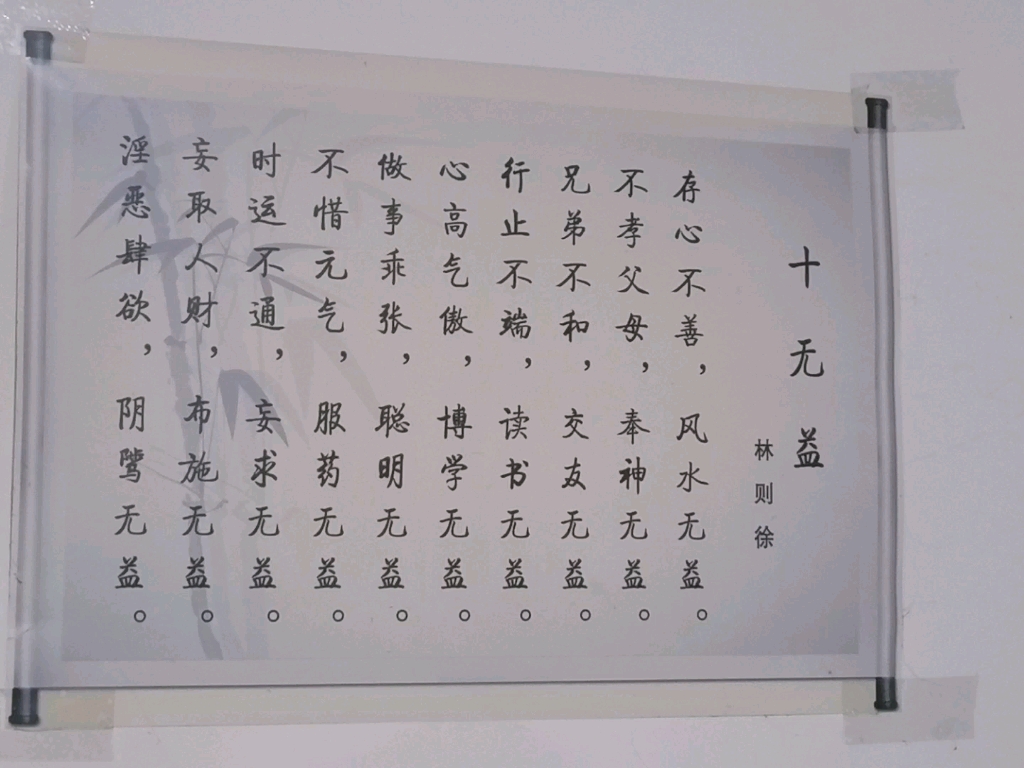 十无益
林则徐
存心不善，风水无益。
不孝父母，奉神无益。
兄弟不和，交友无益。
行止不端，读书无益。
心高气傲，博学无益。
做事乖张，聪明无益。
不惜元气，服药无益。
时运不通，妄求无益。
妄取人财，布施无益。
淫恶肆欲，阴骘无益。